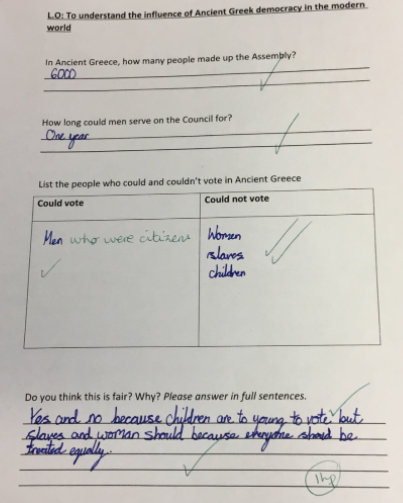 L.O: To understand the influence of Ancient Greek democracy in the modern
world
In Ancient Greece, how many people made up the Assembly?
6000
How long could men serve on the Council for?
One year
List the people who could and couldn't vote in Ancient Greece
Could vote
Could not vote
Men who were citizens
Women
slaves
children
Do you think this is fair? Why? Please answer in full sentences.
Yes and no because children are to young to vote but
slaves and woman should because everyone should be
treated equally.
1hp